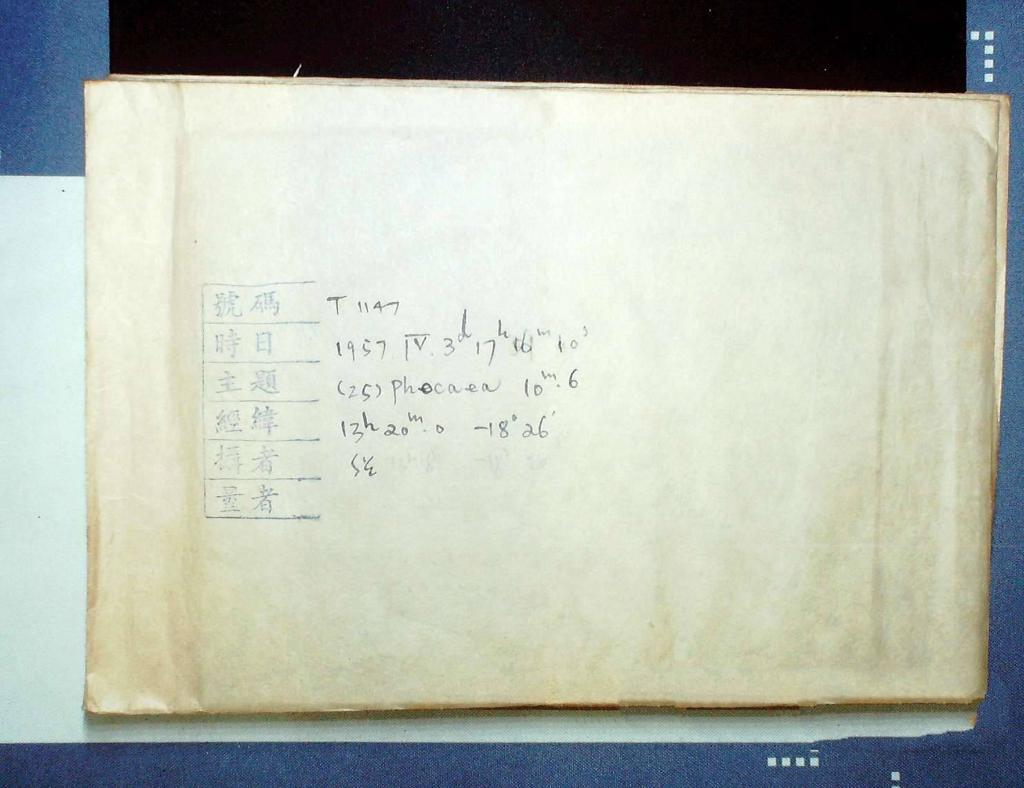 號碼 T 1147
時日 1957 IV. 3ᵈ 17ʰ 16ᵐ 10ˢ
主題 (25) Phocaea 10ᵐ.6
經緯 13ʰ 20ᵐ.0 -18°26'
攝者
量者